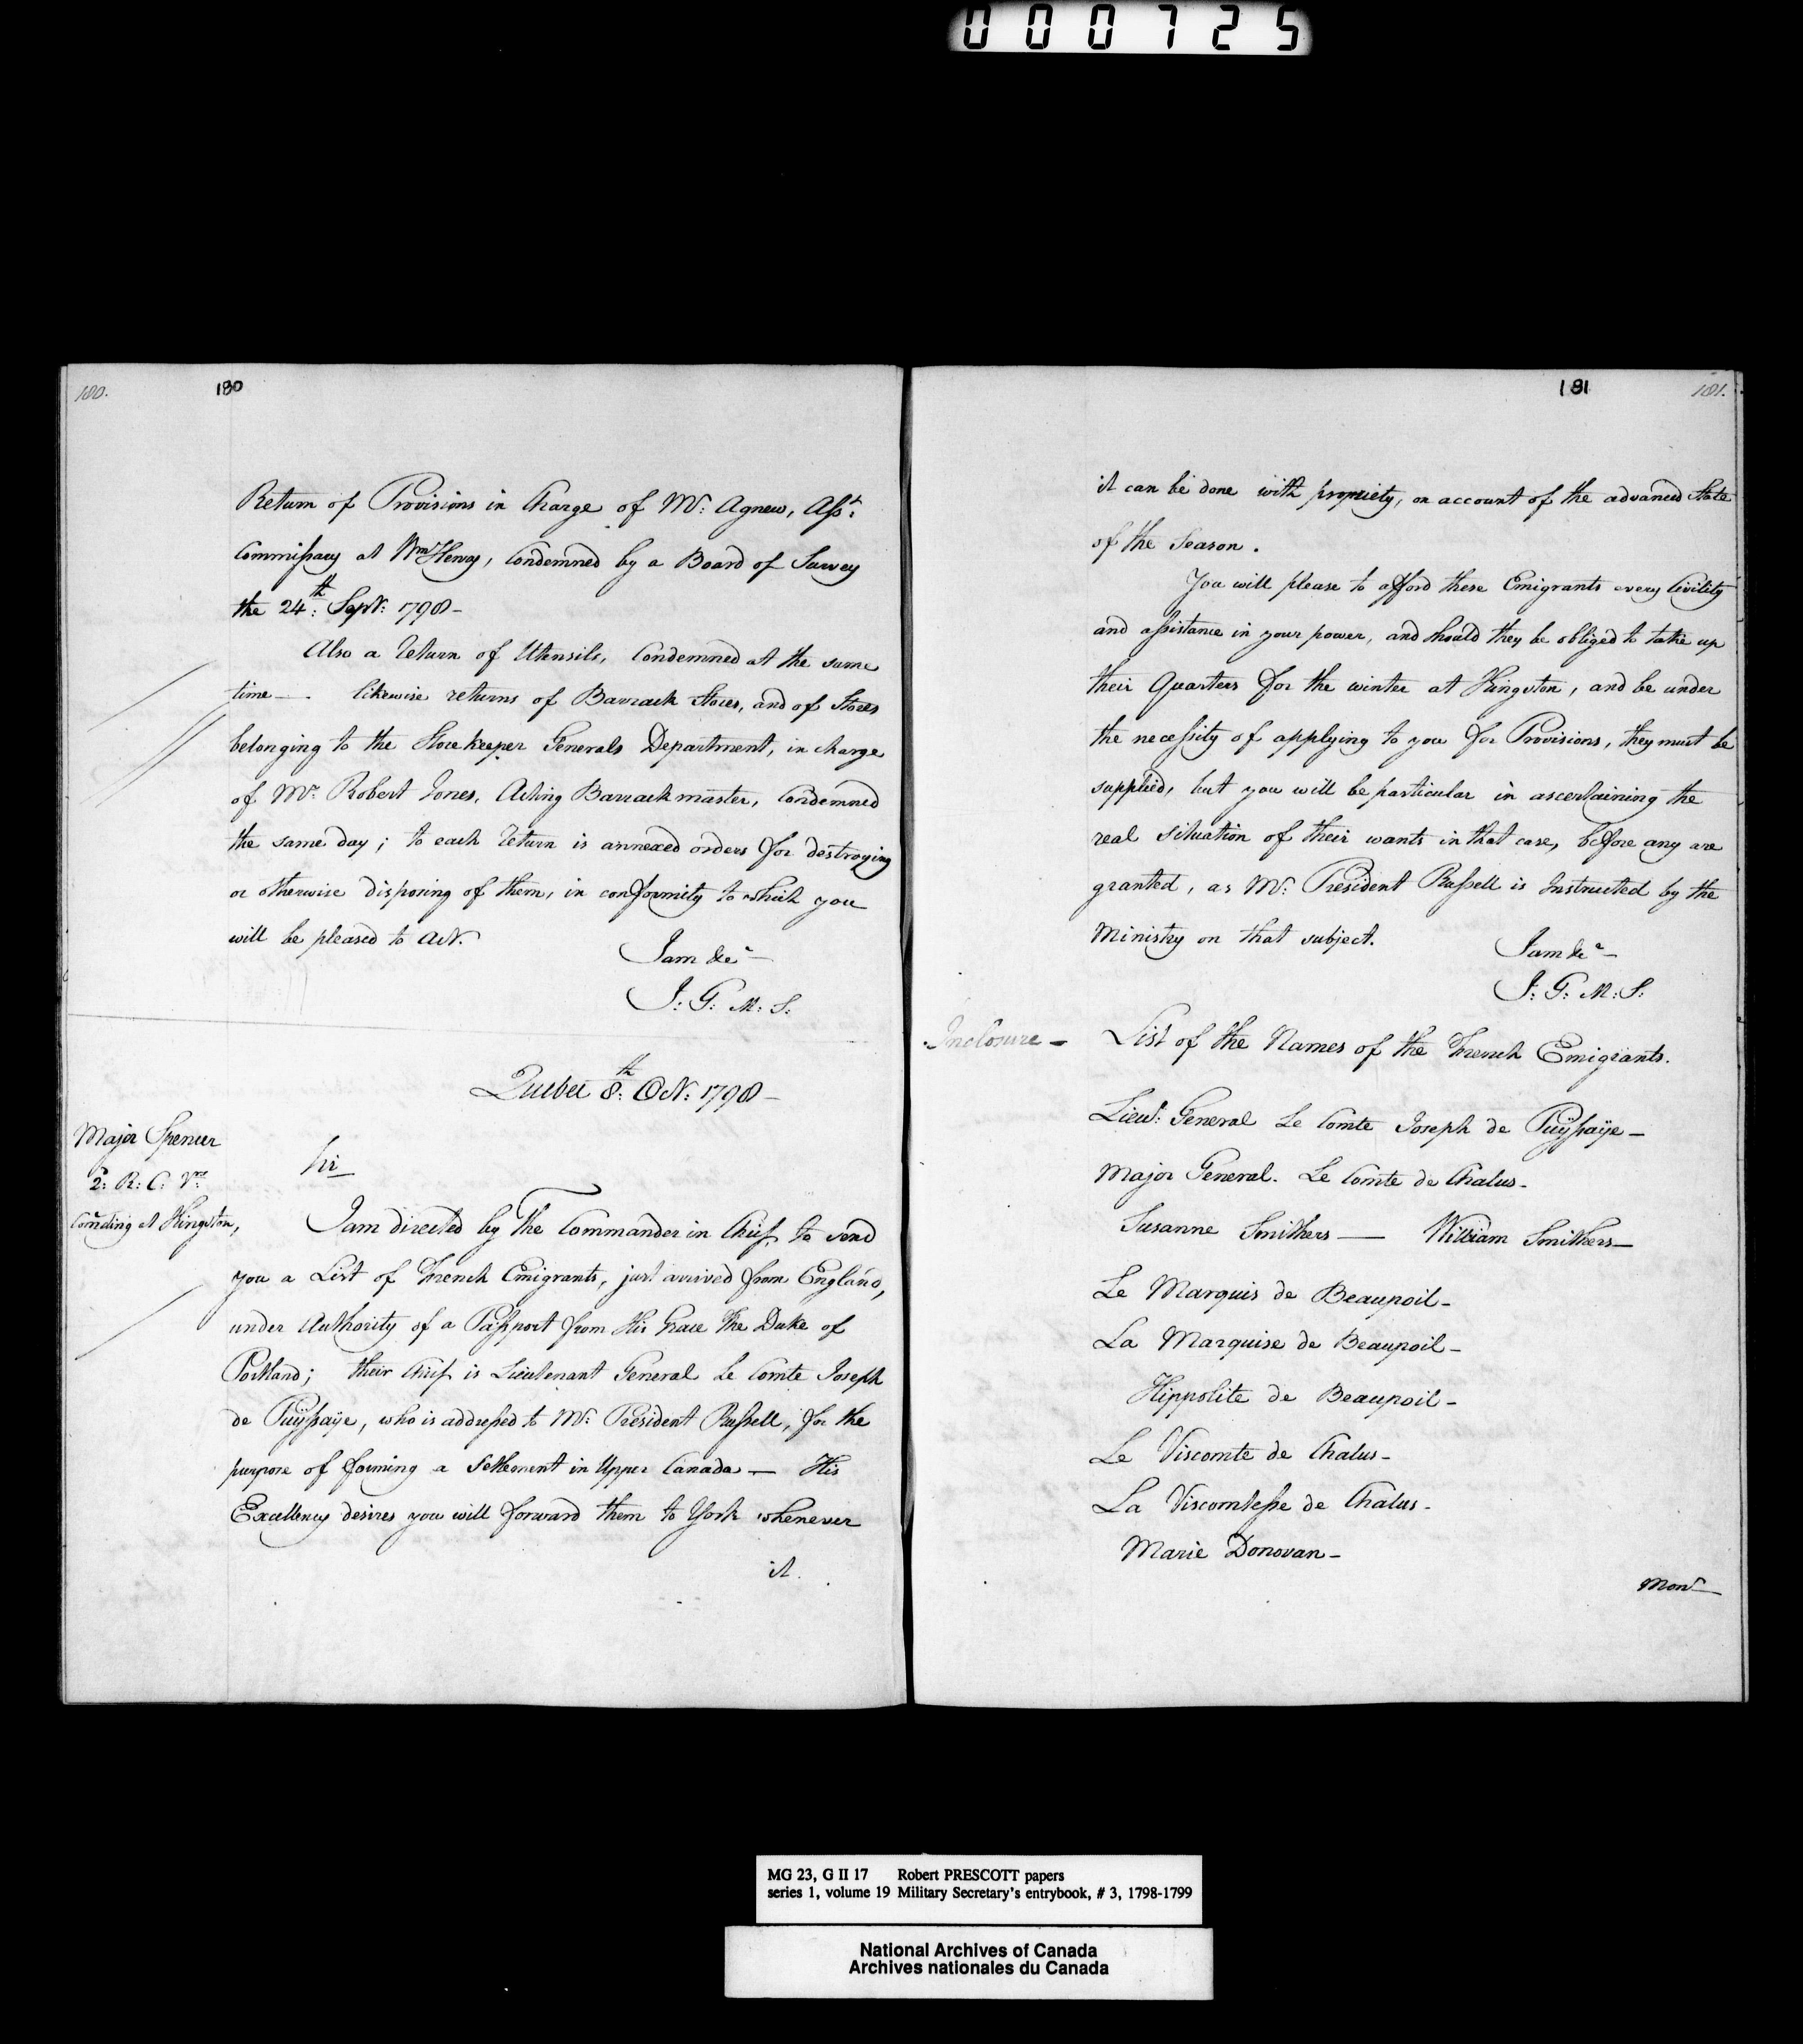 000725
180. 180
Return of Provisions in Charge of Mr: Agnew, Asst:
Commissary at Wm Henry, Condemned by a Board of Survey
the 24th: Sept: 1798 -
Also a Return of Utensils, Condemned at the same
time - . likewise returns of Barrack Stores, and of Stores
belonging to the Storekeeper Generals Department, in charge
of Mr: Robert Jones, Acting Barrack master, Condemned
the same day; to each Return is annexed orders for destroying
or otherwise disposing of them, in conformity to which you
will be pleased to Act.
I am &ca -
J: G: M: S:
Quebec 8th: Oct: 1798 -
Major Spencer
2: R: C: Vrs:
Comding at Kingston,
Sir
I am directed by The Commander in Chief, to send
you a List of French Emigrants, just arrived from England,
under Authority of a Passport from His Grace The Duke of
Portland; their Chief is Lieutenant General Le Comte Joseph
de Puÿsaÿe, who is addressed to Mr: President Russell, for the
purpose of forming a Settlement in Upper Canada - His
Excellency desires you will forward them to York whenever
it.
181 181.
it can be done with propriety, on account of the advanced State
of the Season.
You will please to afford these Emigrants every Civility
and assistance in your power, and should they be obliged to take up
their Quarters for the winter at Kingston, and be under
the necessity of applying to you for Provisions, they must be
supplied, but you will be particular in ascertaining the
real situation of their wants in that case, before any are
granted, as Mr: President Russell is Instructed by the
Ministry on that subject.
I am &ca -
J: G: M: S:
Inclosure - List of the Names of the French Emigrants.
Lieut: General Le Comte Joseph de Puÿsaÿe -
Major General. Le Comte de Chalus -
Susanne Smithers - William Smithers -
Le Marquis de Beaupoil -
La Marquise de Beaupoil -
Hippolite de Beaupoil -
Le Viscomte de Chalus -
La Viscomtesse de Chalus -
Marie Donovan -
Monr
MG 23, G II 17 Robert PRESCOTT papers
series 1, volume 19 Military Secretary's entrybook, # 3, 1798-1799
National Archives of Canada
Archives nationales du Canada